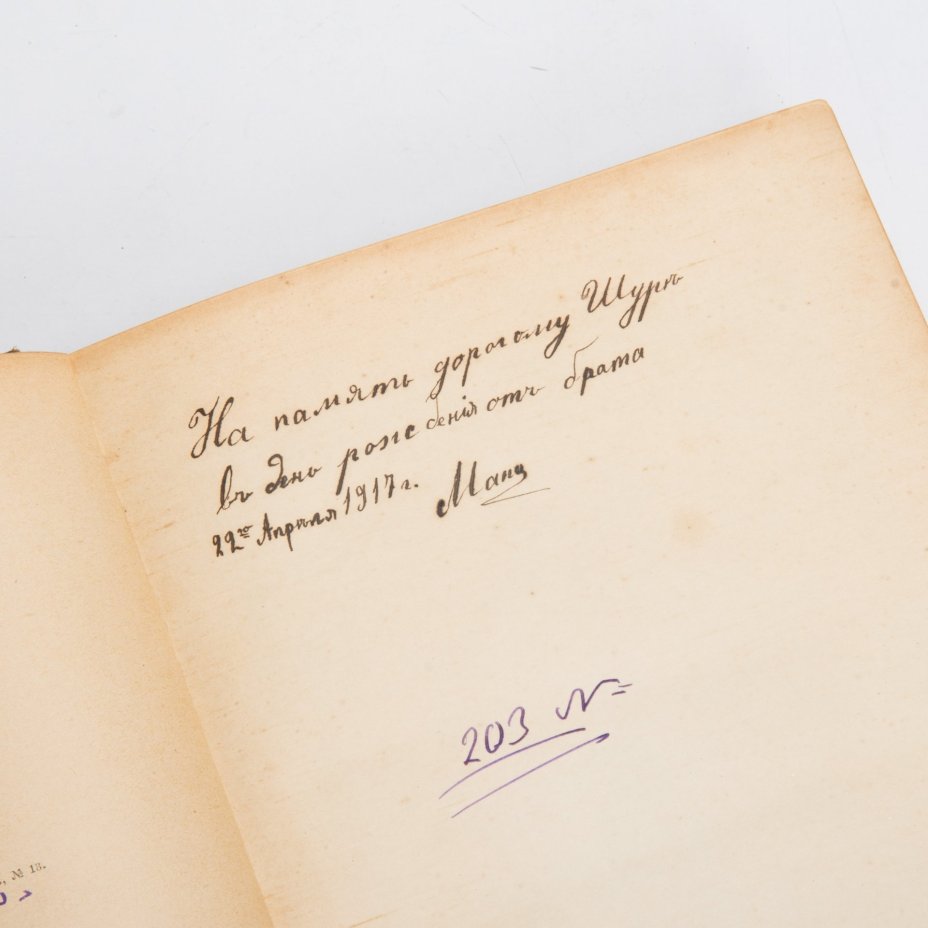 На память дорогому Шурѣ
въ день рожденія отъ брата
22го Апрѣля 1917 г.
203 №
, № 13.